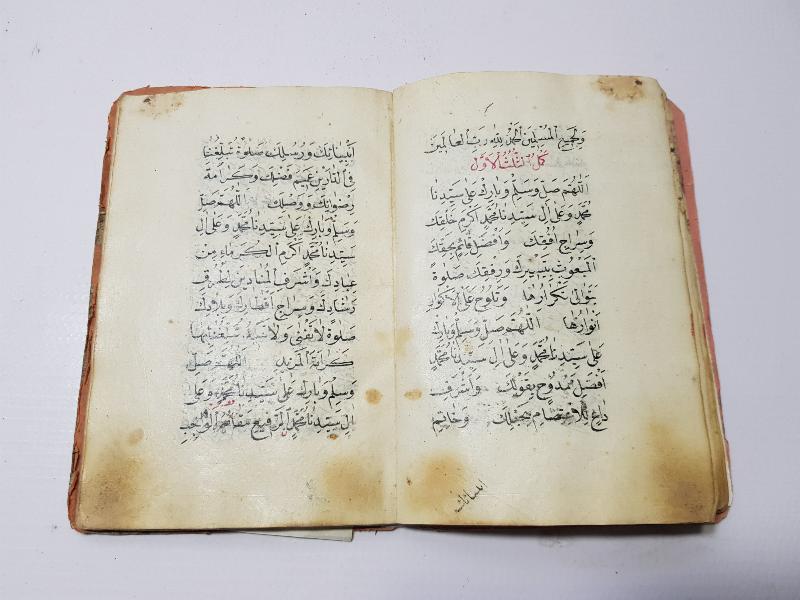 ولجميع المسلمين الحمد لله رب العالمين
كمل الثلث الاول
اللهم صل وسلم وبارك على سيدنا
محمد وعلى ال سيدنا محمد اكرم خلقك
وسراج افقك وافضل قائم بحقك
المبعوث بتيسيرك ورفقك صلوة
يتوالى تكرارها وتلوح على الاكوان
انوارها اللهم صل وسلم وبارك
على سيدنا محمد وعلى ال سيدنا محمد
افضل ممدوح بقولك واشرف
داع للاعتصام بحبلك وخاتم
انبيائك
انبيائك ورسلك صلوة تبلغنا
في الدارين عميم فضلك وكرامة
رضوانك ووصلك اللهم صل
وسلم وبارك على سيدنا محمد وعلى ال
سيدنا محمد اكرم الكرماء من
عبادك واشرف المنادين لطرق
رشادك وسراج اقطارك وبلادك
صلوة لا تفنى ولا تبيد تبلغنا بها
كرامة المزيد اللهم صل
وسلم وبارك على سيدنا محمد وعلى
ال سيدنا محمد الرفيع مقامه الواجب